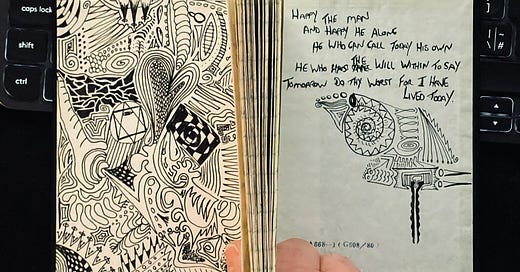 caps lock
shift
ctrl
HAPPY THE MAN
AND HAPPY HE ALONE
HE WHO CAN CALL TODAY HIS OWN
HE WHO HAS THE WILL WITHIN TO SAY
TOMORROW DO THY WORST FOR I HAVE
LIVED TODAY.
A668-1 (G508/80)